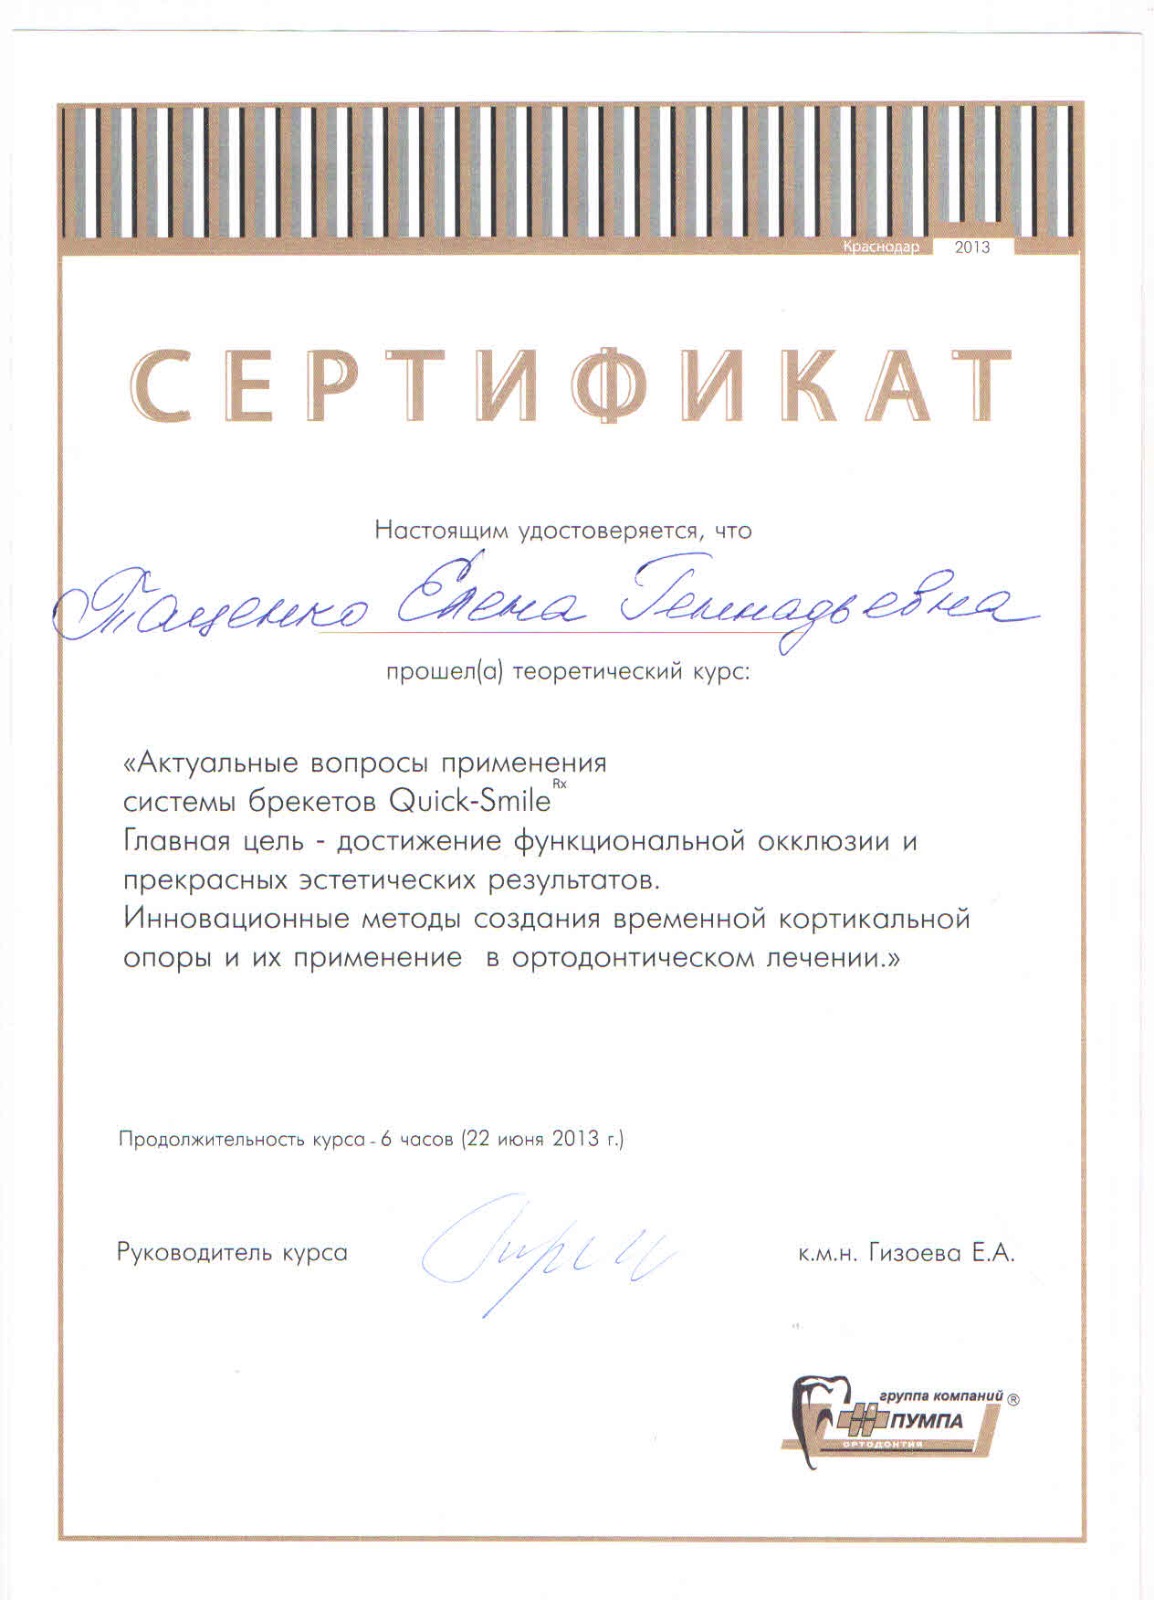 Краснодар 2013
СЕРТИФИКАТ
Настоящим удостоверяется, что
Таценко Елена Геннадьевна
прошел(а) теоретический курс:
«Актуальные вопросы применения
системы брекетов Quick-Smile Rx
Главная цель - достижение функциональной окклюзии и
прекрасных эстетических результатов.
Инновационные методы создания временной кортикальной
опоры и их применение в ортодонтическом лечении.»
Продолжительность курса - 6 часов (22 июня 2013 г.)
Руководитель курса к.м.н. Гизоева Е.А.
группа компаний ®
ПУМПА
ОРТОДОНТИЯ